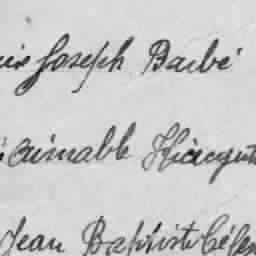 Joseph Barbé
aimable Hiacynt
Jean Baptiste Céles